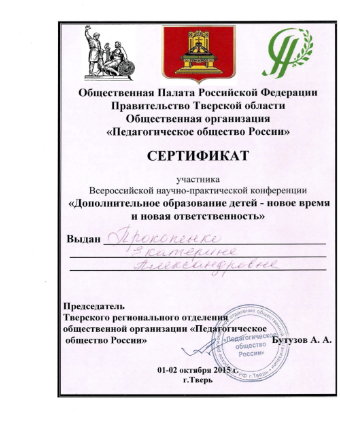 Общественная Палата Российской Федерации
Правительство Тверской области
Общественная организация
«Педагогическое общество России»
СЕРТИФИКАТ
участника
Всероссийской научно-практической конференции
«Дополнительное образование детей - новое время
и новая ответственность»
Выдан Прокопенко
Екатерине
Александровне
Председатель
Тверского регионального отделения
общественной организации «Педагогическое
общество России» Бутузов А. А.
«Педагогическое
общество
России»
01-02 октября 2015 г.
г.Тверь